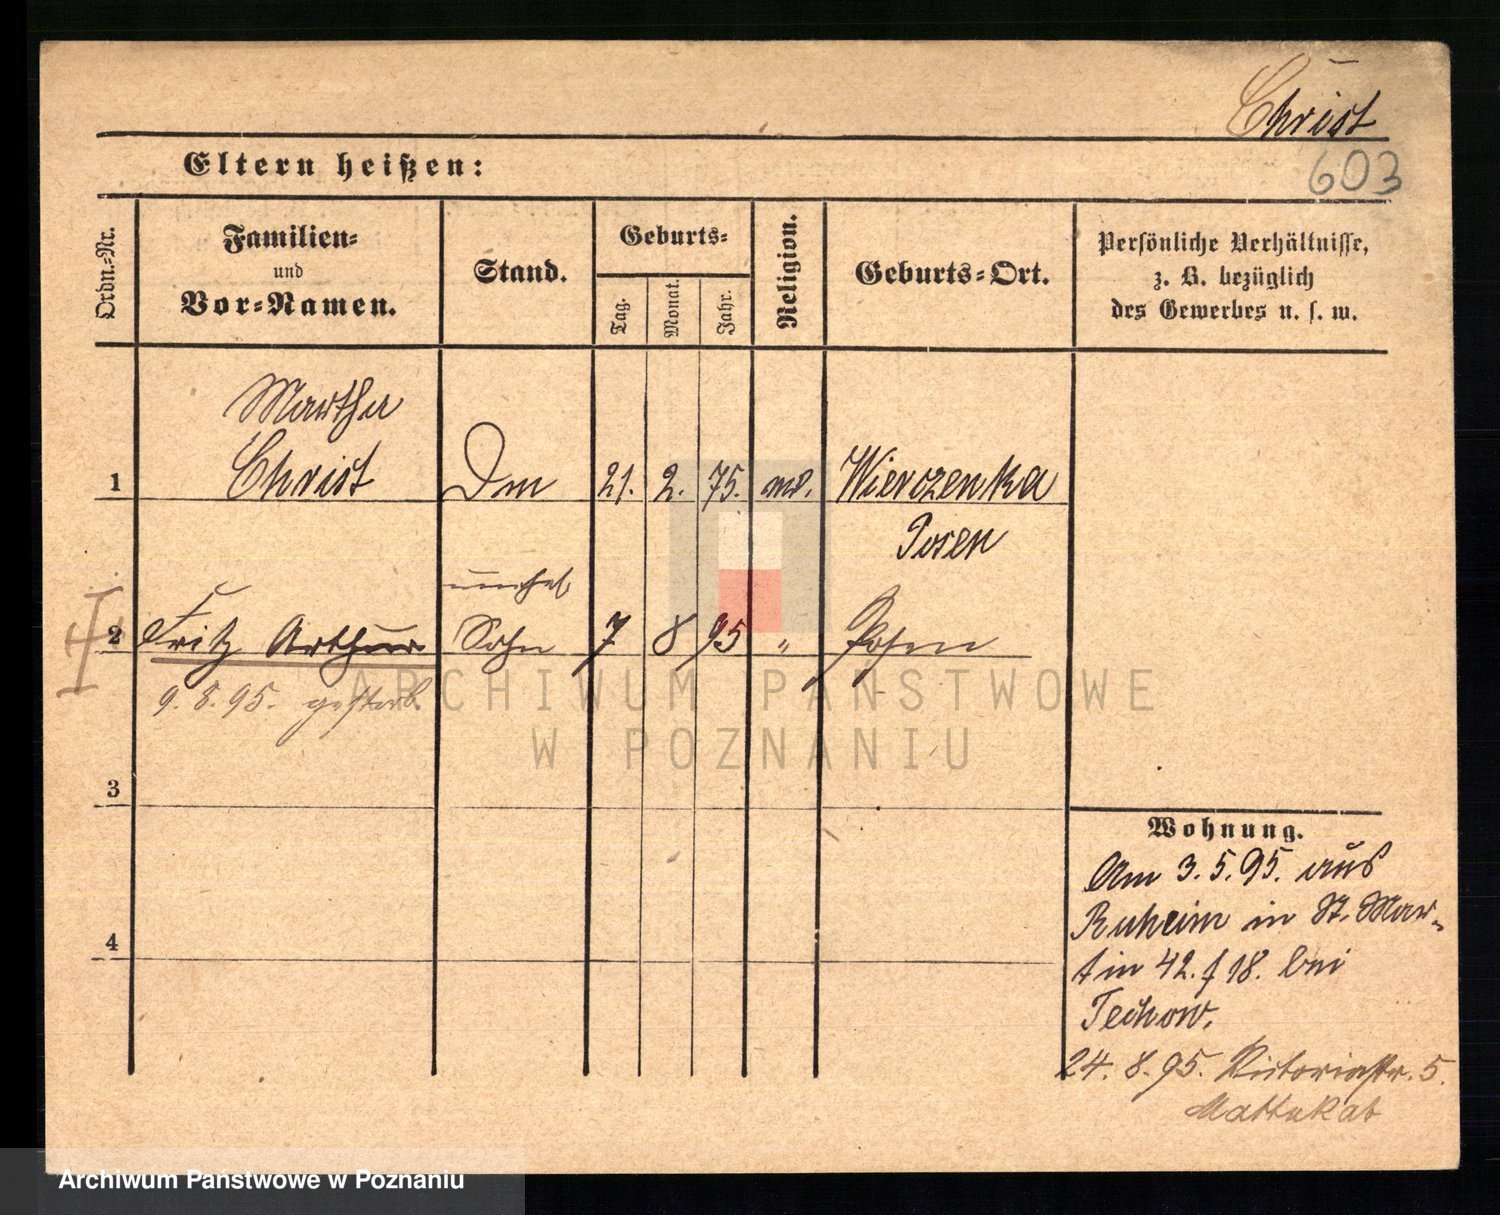 Christ
603
Eltern heißen:
Ordn.-Nr.
Familien-
und
Vor-Namen.
Stand.
Geburts-
Tag.
Monat.
Jahr.
Religion.
Geburts-Ort.
Persönliche Verhältnisse,
z. B. bezüglich
des Gewerbes u. s. w.
Martha
1 Christ 21. 2. 75. Wierczenka
Posen
unehel
2 Fritz Arthur Sohn 7 8 95 " Posen
9.8.95. gestorb.
3
4
Wohnung.
Am 3.5.95. aus
in St. Mar-
tin 42. f 18. bei
Techow.
24. 8. 95. Victoriastr. 5.
Mattukat
ARCHIWUM PAŃSTWOWE
W POZNANIU
Archiwum Państwowe w Poznaniu